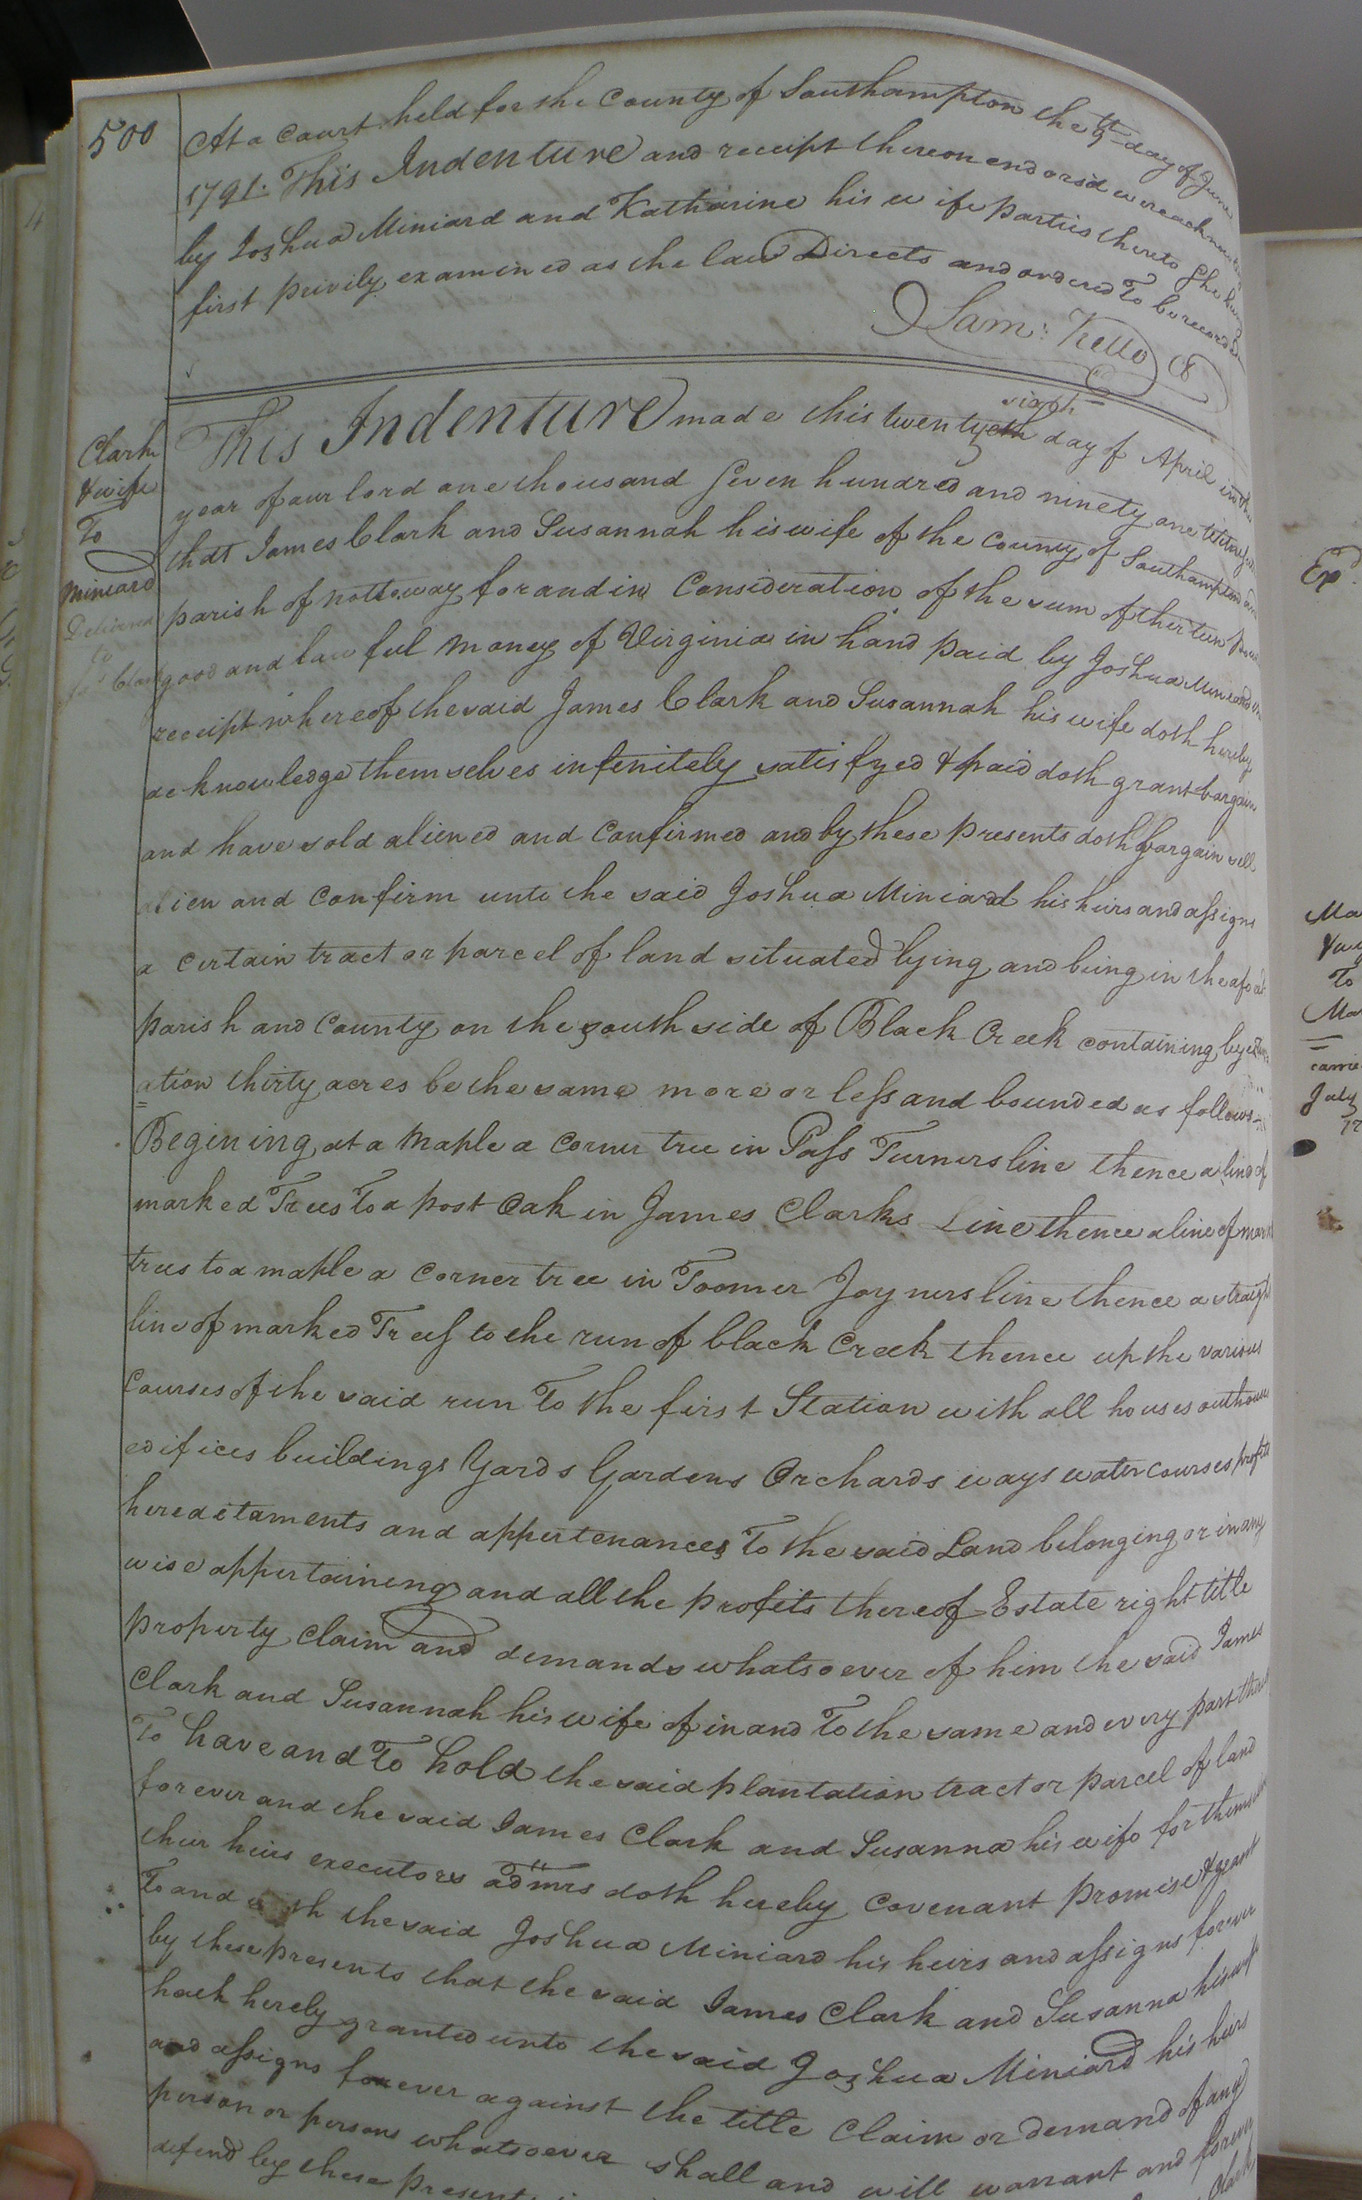 500
At a Court held for the County of Southampton the 9th day of June
1791. This Indenture and receipt thereon endorsd were acknow
by Joshua Miniard and Katharine his wife parties thereto She
first privily examined as the law Directs and ordered To be recorded
Sam: Kello C
Clark
& wife
To
Miniard
Delivered
to
Clark
This Indenture made this twenty sixth day of April in the
year of our lord one thousand Seven hundred and ninety one Witnes
that James Clark and Susannah his wife of the County of Southampton and
parish of nottoway for and in Consideration of the sum of thirteen
good and lawful money of Virginia in hand paid by Joshua Miniard
receipt whereof the said James Clark and Susannah his wife doth hereby
acknowledge themselves infenitely satisfyed & paid doth grant bargain
and have sold aliened and Confirmed and by these presents doth bargain sell
alien and Confirm unto the said Joshua Miniard his heirs and assigns
a certain tract or parcel of land situated lying and being in the afo
parish and County on the south side of Black Creek containing by
ation thirty acres be the same more or less and bounded as follows
Begining at a maple a corner tree in Pass Turners line thence a line of
marked Trees To a post Oak in James Clarks Line thence a line of mark
trees to a maple a corner tree in Toomer Joyners line thence a straight
line of marked Trees to the run of black Creek thence up the various
Courses of the said run To the first Station with all houses outhouse
edifices buildings Yards Gardens Orchards ways water courses profits
hereditaments and appertenances To the said Land belonging or in any
wise appertaining and all the profits thereof Estate right title
property claim and demands whatsoever of him the said James
Clark and Susannah his wife of in and To the same and every part
To have and To hold the said plantation tract or parcel of land
forever and the said James Clark and Susanna his wife for
their heirs executors admrs doth hereby covenant promise & grant
To and with the said Joshua Miniard his heirs and assigns forever
by these presents that the said James Clark and Susanna his wife
hath herely granted unto the said Joshua Miniard his heirs
and assigns forever against the title Claim or demand of any
person or persons whatsoever shall and will warrant and forever
defend by these presents
Clark
Expd.
Ma
To
Ma
July